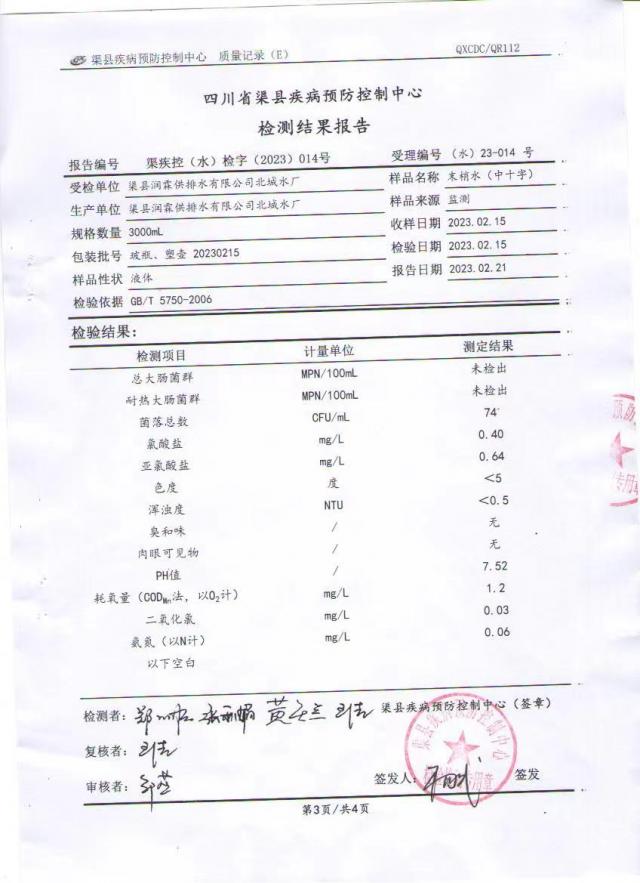 渠县疾病预防控制中心 质量记录（E） QXCDC/QR112
四川省渠县疾病预防控制中心
检测结果报告
报告编号 渠疾控（水）检字（2023）014号 受理编号（水）23-014 号
受检单位 渠县润霖供排水有限公司北城水厂 样品名称 末梢水（中十字）
生产单位 渠县润霖供排水有限公司北城水厂 样品来源 监测
规格数量 3000mL 收样日期 2023.02.15
包装批号 玻瓶、塑壶 20230215 检验日期 2023.02.15
样品性状 液体 报告日期 2023.02.21
检验依据 GB/T 5750-2006
检验结果：
检测项目 计量单位 测定结果
总大肠菌群 MPN/100mL 未检出
耐热大肠菌群 MPN/100mL 未检出
菌落总数 CFU/mL 74
氯酸盐 mg/L 0.40
亚氯酸盐 mg/L 0.64
色度 度 <5
浑浊度 NTU <0.5
臭和味 / 无
肉眼可见物 / 无
PH值 / 7.52
耗氧量（CODMn法，以O2计） mg/L 1.2
二氧化氯 mg/L 0.03
氨氮（以N计） mg/L 0.06
以下空白
检测者： 渠县疾病预防控制中心（签章）
复核者：
审核者： 签发人： 签发
第3页/共4页